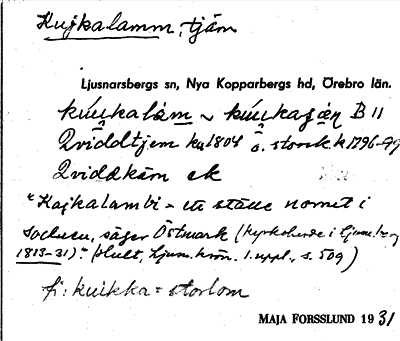 Kujkalamm, tjärn
Ljusnarsbergs sn, Nya Kopparbergs hd, Örebro län.
B 11
Qviddtjern ku 1804 o. storsk.k 1796-99
Qviddkärn ek
"Kajkalambi - ett ställe nämnt i
socknen, säger Östmark (kyrkoherde i Ljusn.berg
1813-31)." (Hult, Ljusn.krön. 1. uppl., s. 509)
fi: kuikka = storlom
MAJA FORSSLUND 1931